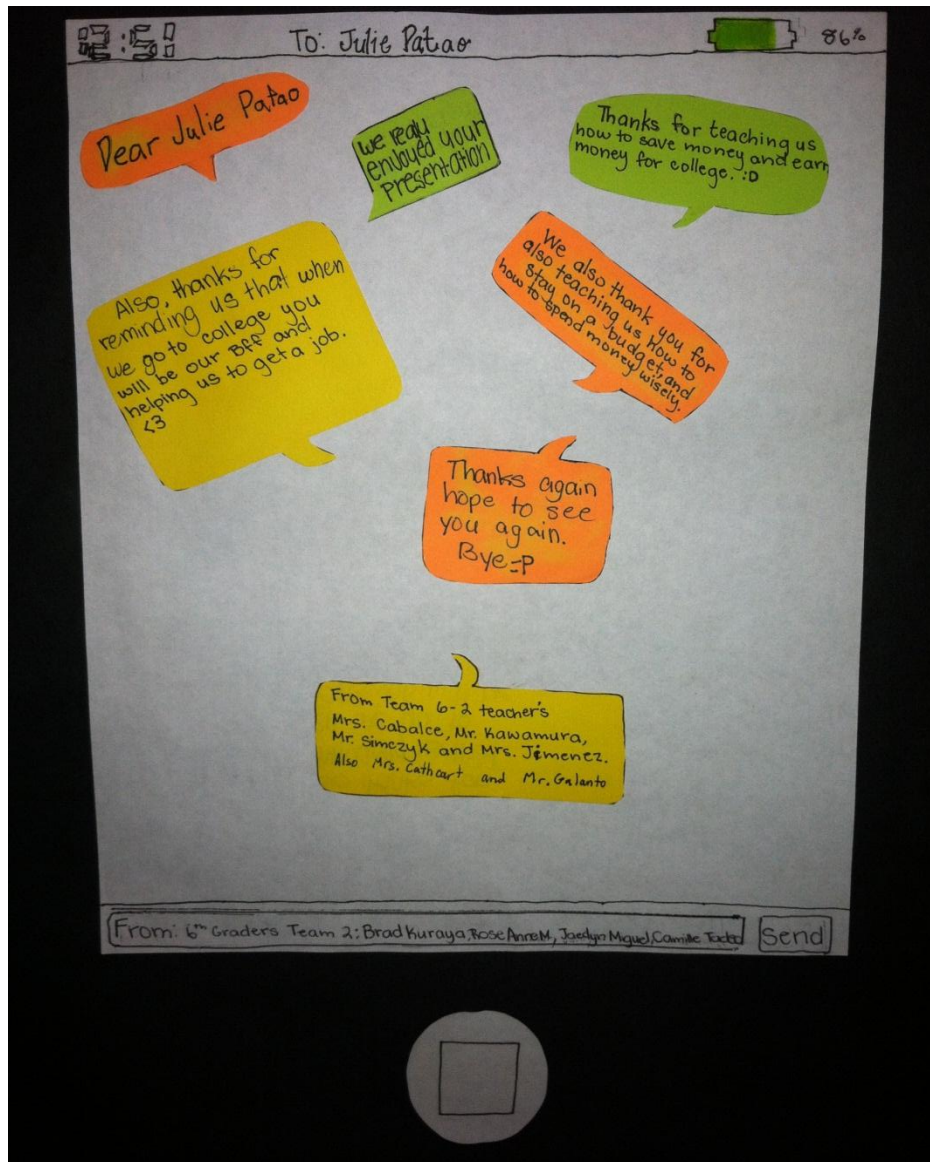 To: Julie Patao
86%
Dear Julie Patao
we realy
enjoyed your
presentation
Thanks for teaching us
how to save money and earn
money for college. :D
Also, thanks for
reminding us that when
we go to college you
will be our BFF and
helping us to get a job.
<3
We also thank you for
also teaching us how to
stay on a budget, and
how to spend money wisely.
Thanks again
hope to see
you again.
Bye =P
From Team 6-2 teacher's
Mrs. Cabalce, Mr. Kawamura,
Mr. Simczyk and Mrs. Jimenez.
Also Mrs. Cathcart and Mr. Galanto
From: 6th Graders Team 2: Brad Kuraya, Rose Anne M, Jaedyn Miguel, Camille
Send